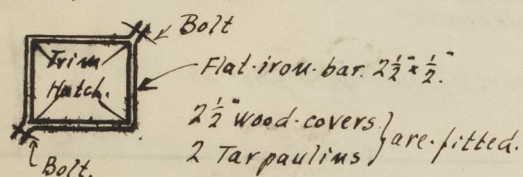 Bolt
Trim
Hatch.
Flat-iron-bar. 2½" x ½".
2½" wood-covers.
2 Tarpaulins } are-fitted.
Bolt.